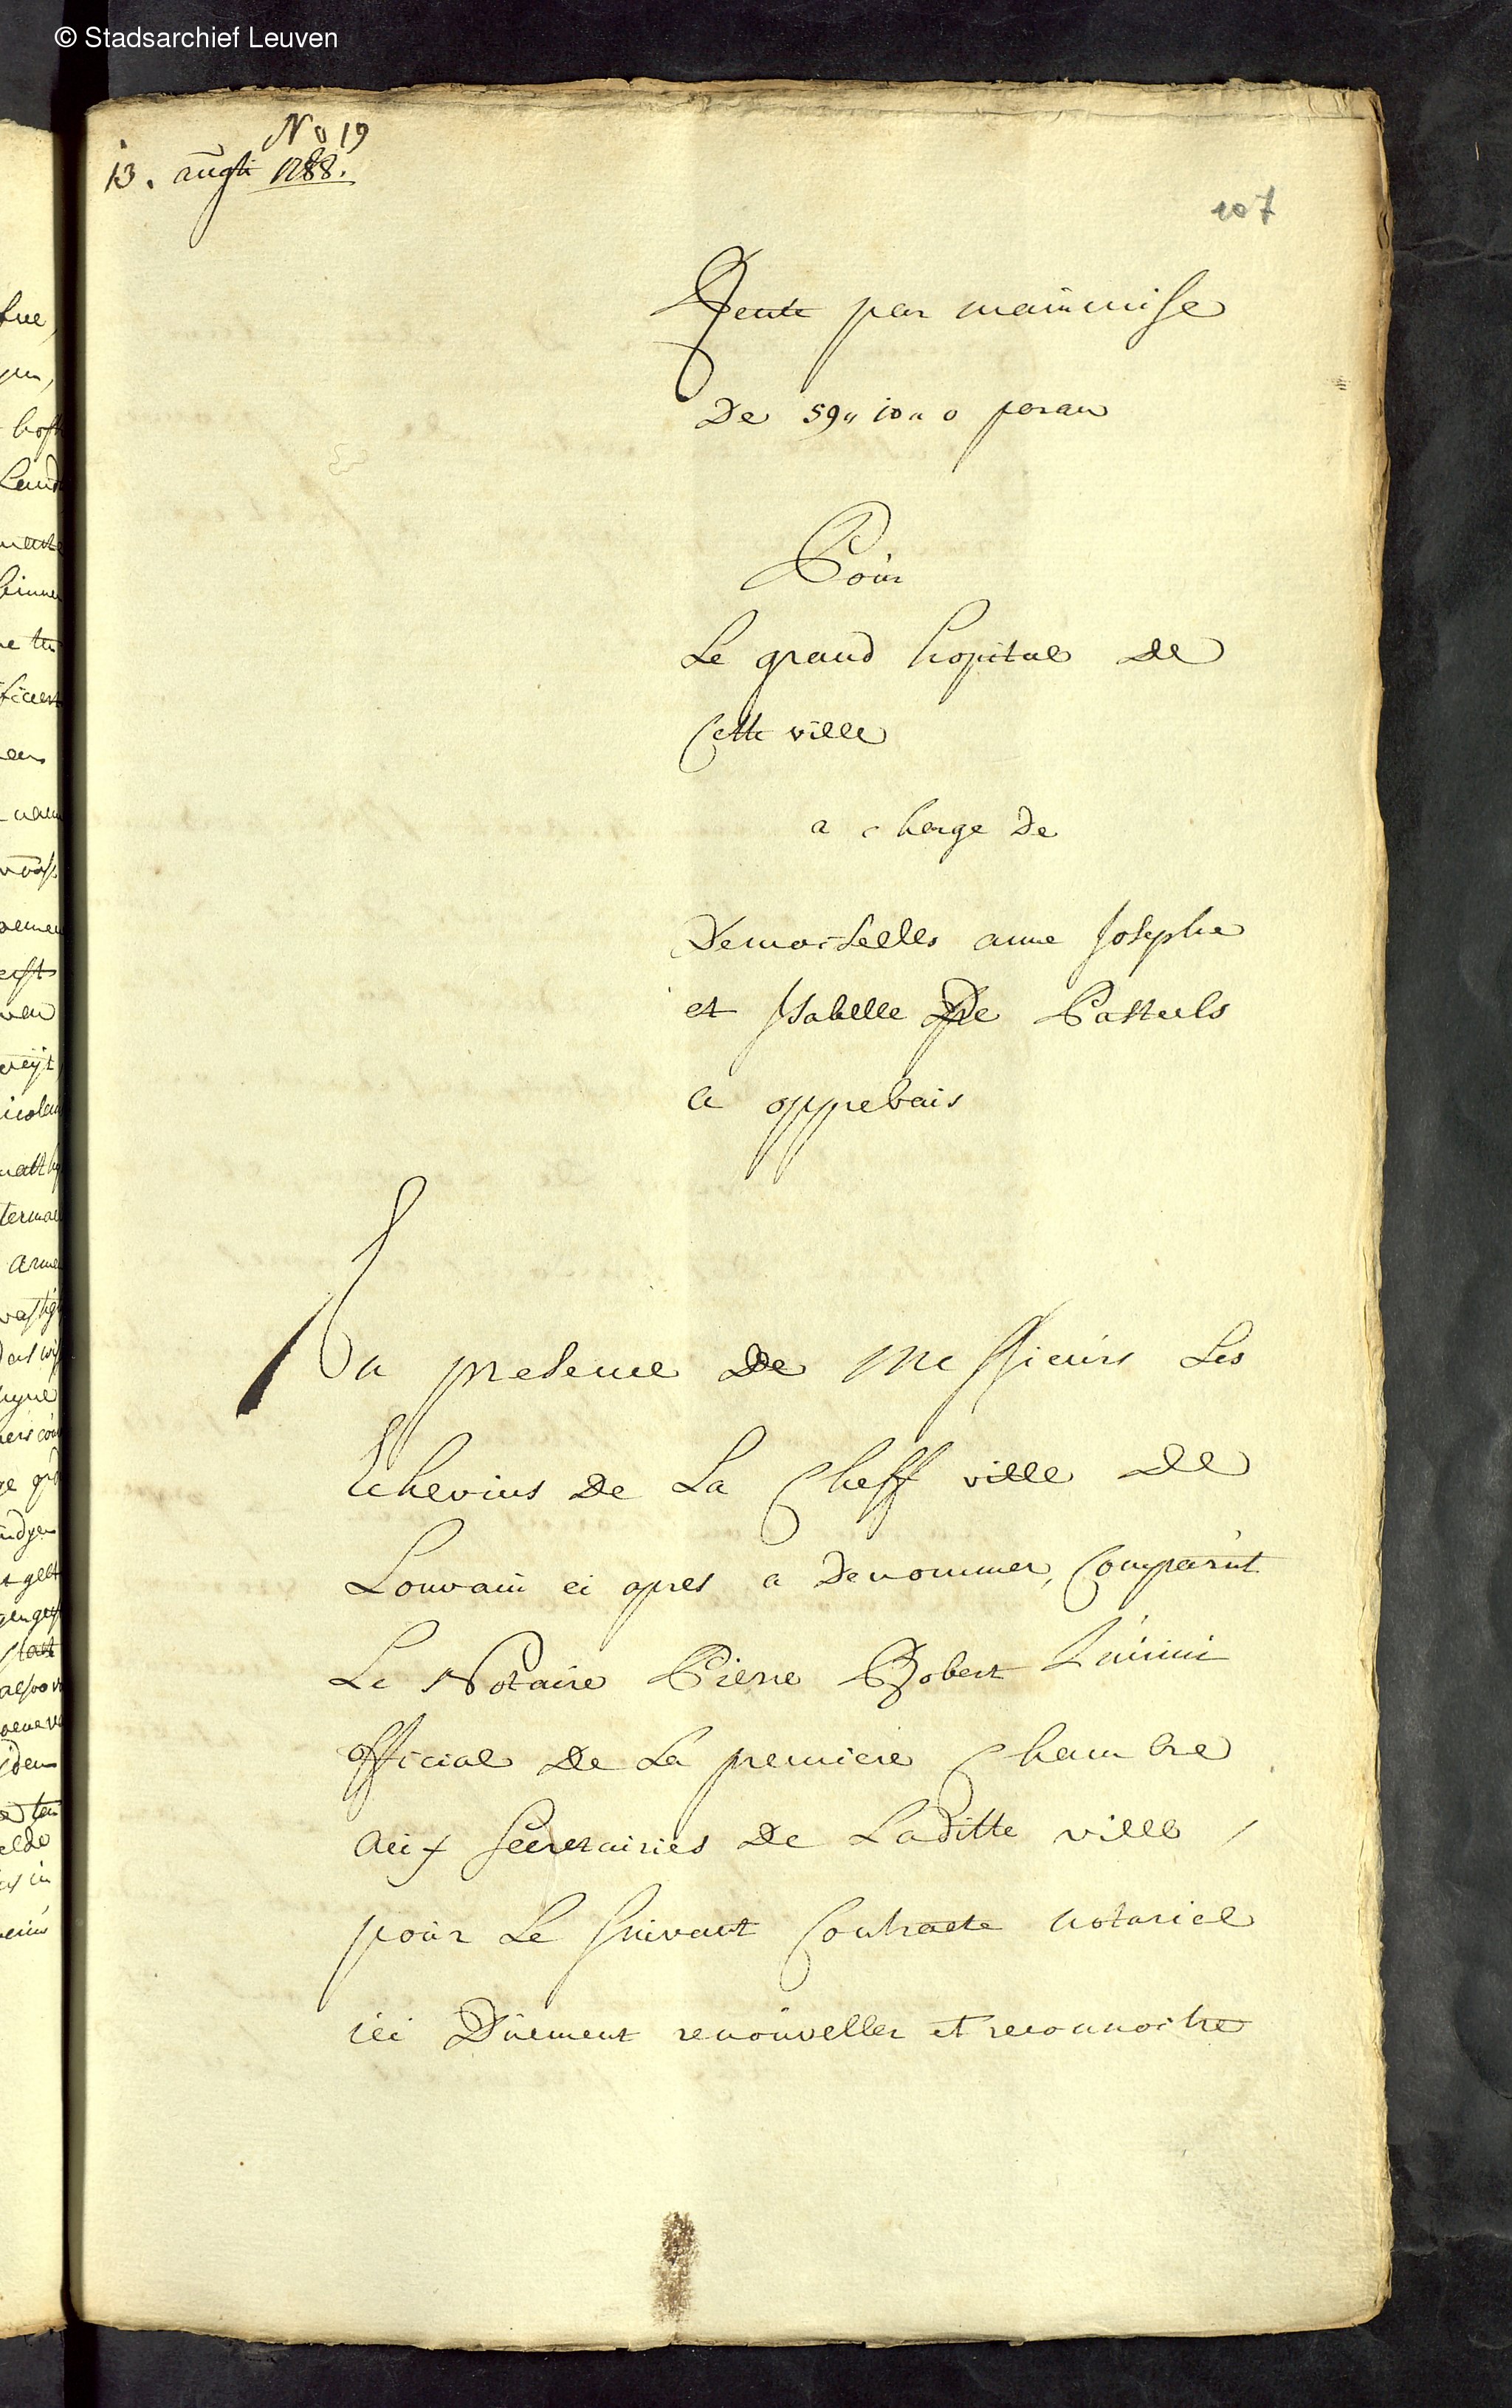 © Stadsarchief Leuven
No 19
13. augti 1788.
107
Rente par mainmise
De 59 " 10 " 0 par an
Pour
Le grand hopital de
Cette ville
a charge de
Demoiselles anne Josephe
et Isabelle De Pasteels
a opprebais
En presence de Messieurs Les
Echevins de La Cheff ville de
Louvain ci apres a denommer, Comparut
Le Notaire Pierre Robert
official de La premiere Chambre
aux secretairies de Laditte ville,
pour Le suivant Contracte notariel
ici Duement renouveller et reconnoitre